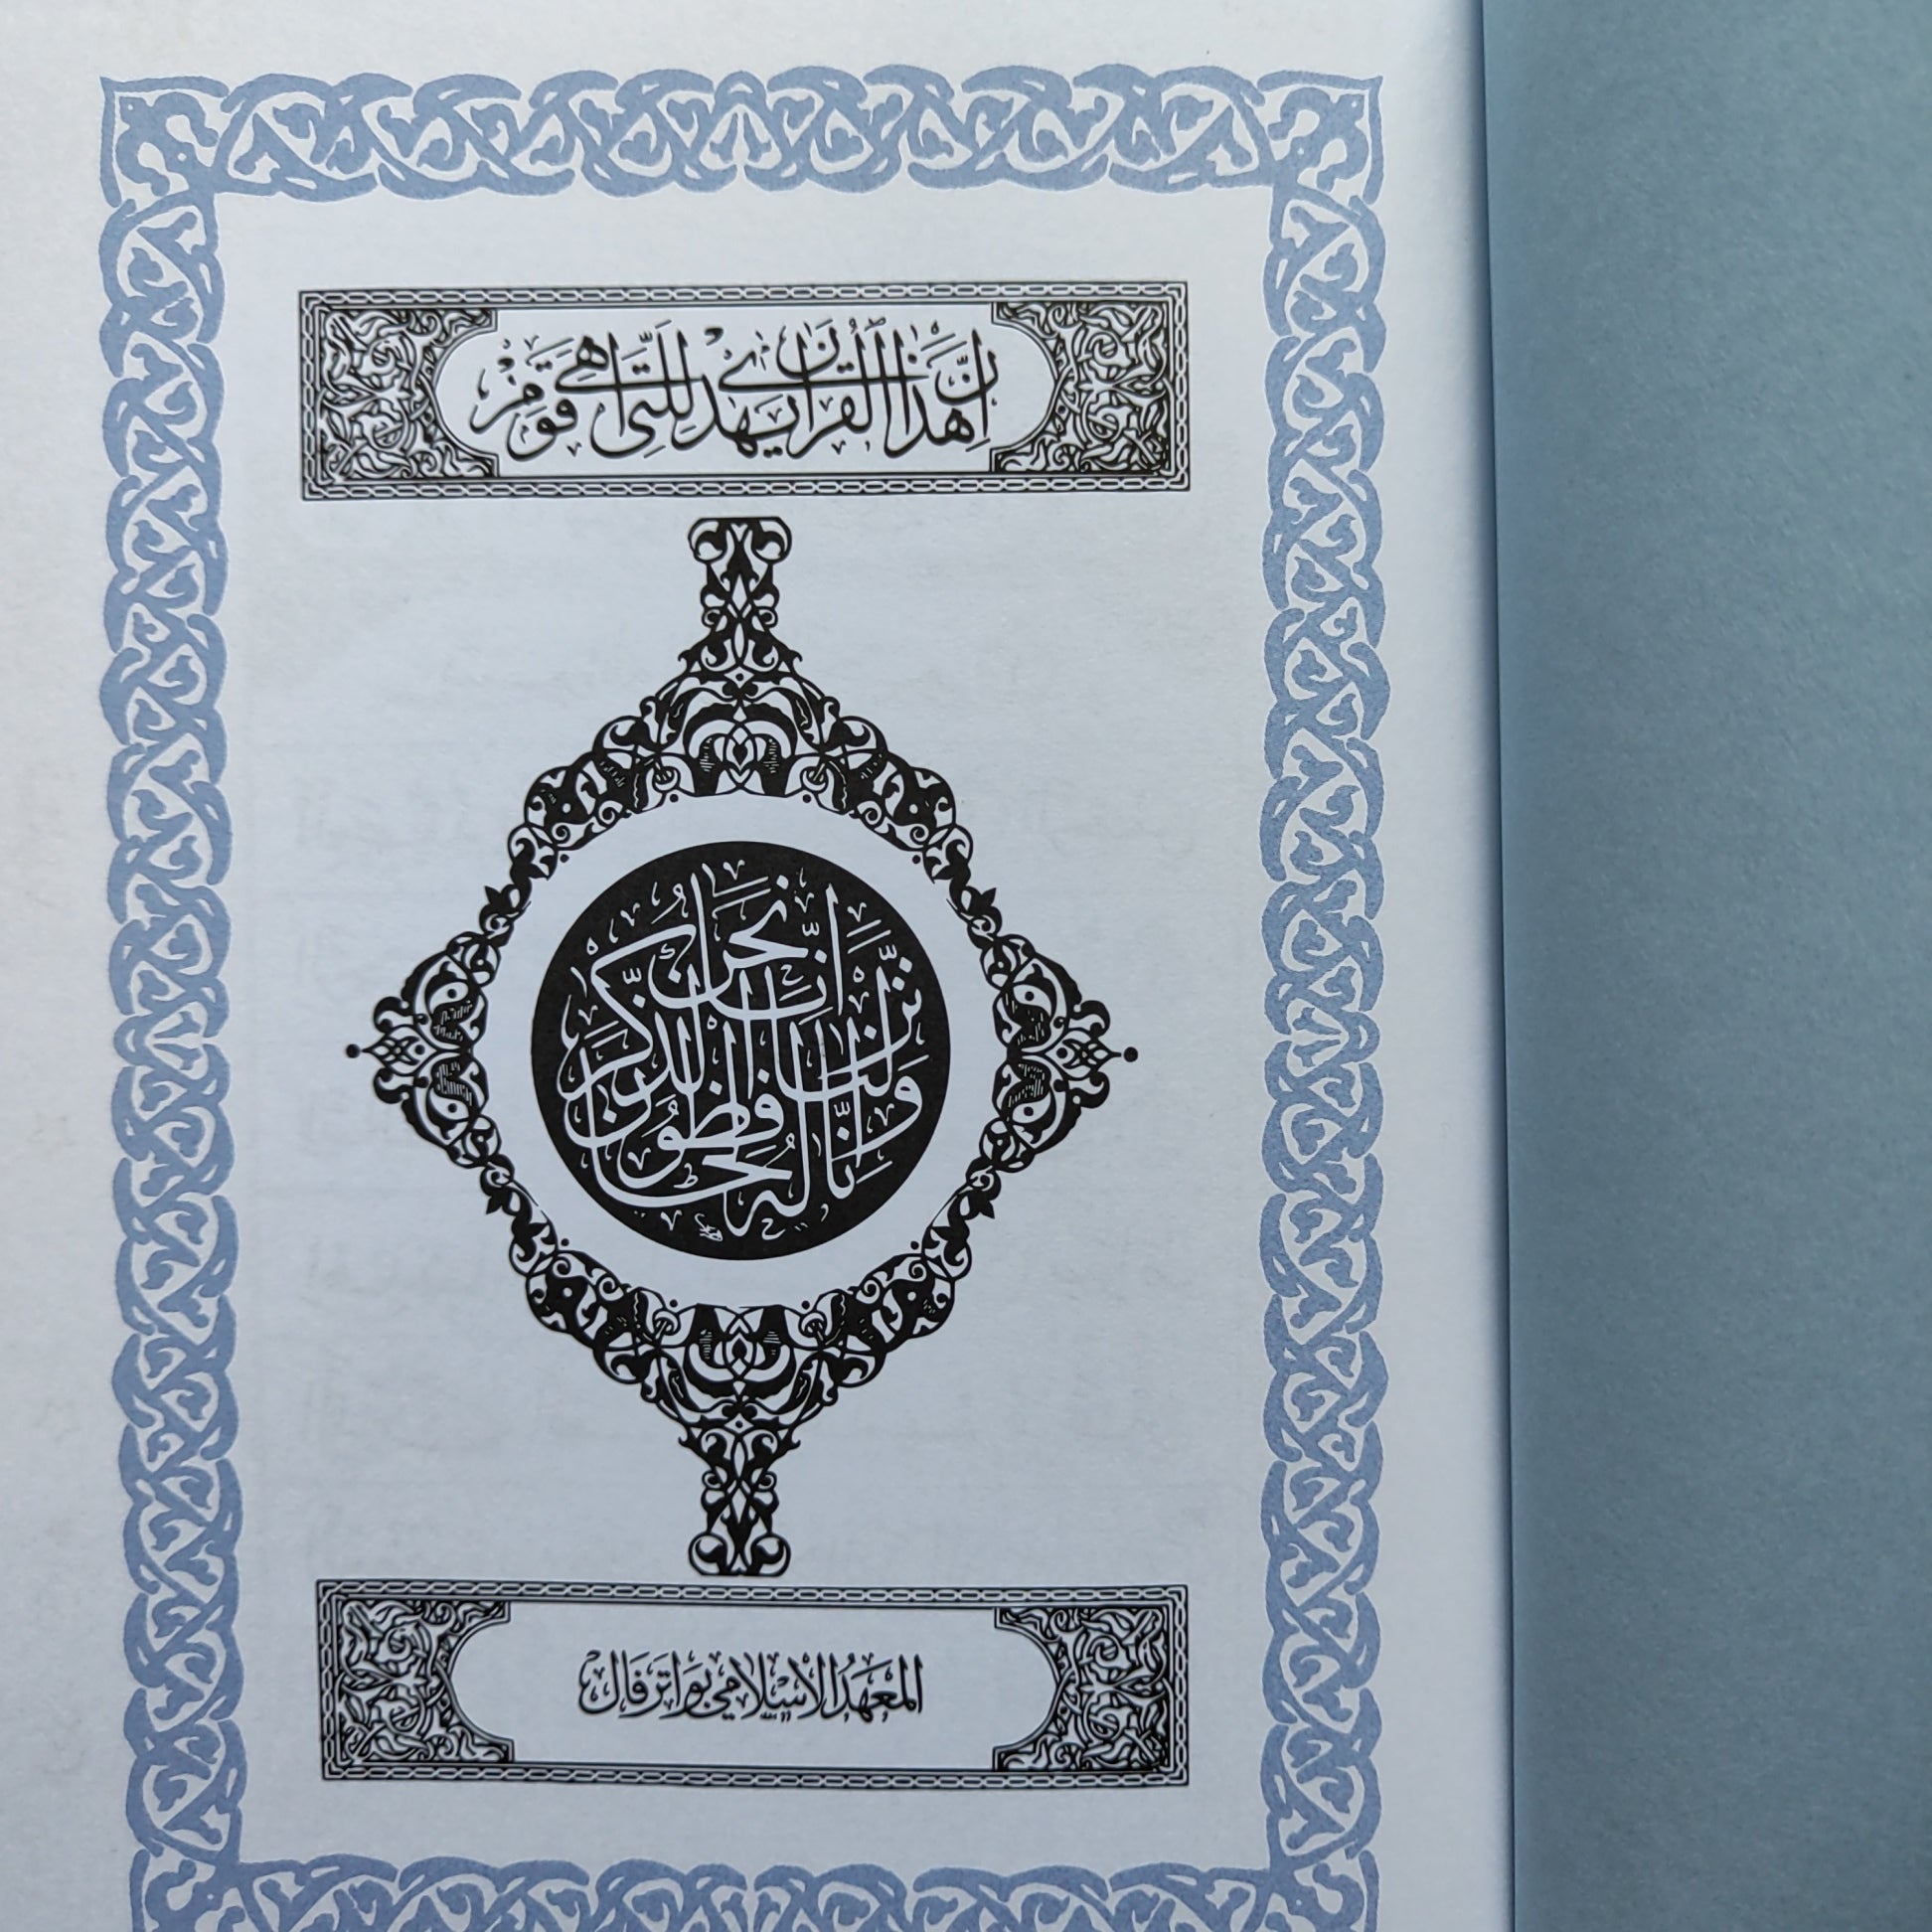 إِنَّ هَذَا الْقُرْآنَ يَهْدِي لِلَّتِي هِيَ أَقْوَمُ
إِنَّا نَحْنُ نَزَّلْنَا الذِّكْرَ وَإِنَّا لَهُ لَحَافِظُونَ
المَعهَدُ الاسْلامي بوَاترفَال